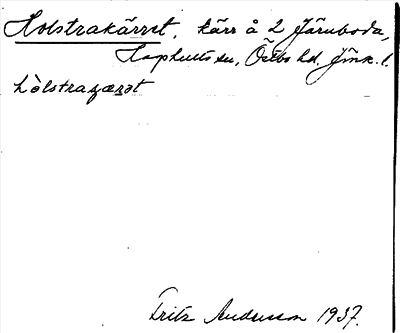 Holstrakärret, kärr å 2 Järnboda,
Hagshults sn, Östbo hd. Jönk. l.
hòlstraɟæɽət
Fritz Andersson 1937.